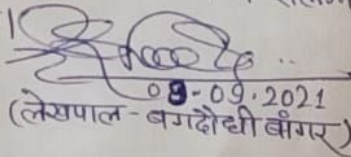 08-09.2021
(लेखपाल - बगदौधी बाँगर)